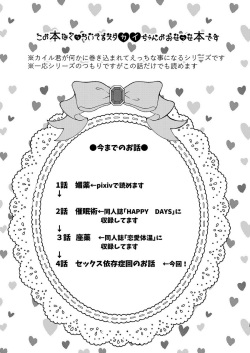 この本は
カイ
ちゃんの
な本です
※カイル君が何かに巻き込まれてえっちな事になるシリーズです
※一応シリーズのつもりですがこの話だけでも読めます
●今までのお話●
1話 媚薬←pixivで読めます
↓
2話 催眠術←同人誌「HAPPY DAYS」に
収録してます
↓
3話 座薬 ←同人誌「恋愛体温」に
収録してます
↓
4話 セックス依存症回のお話 ←今回!